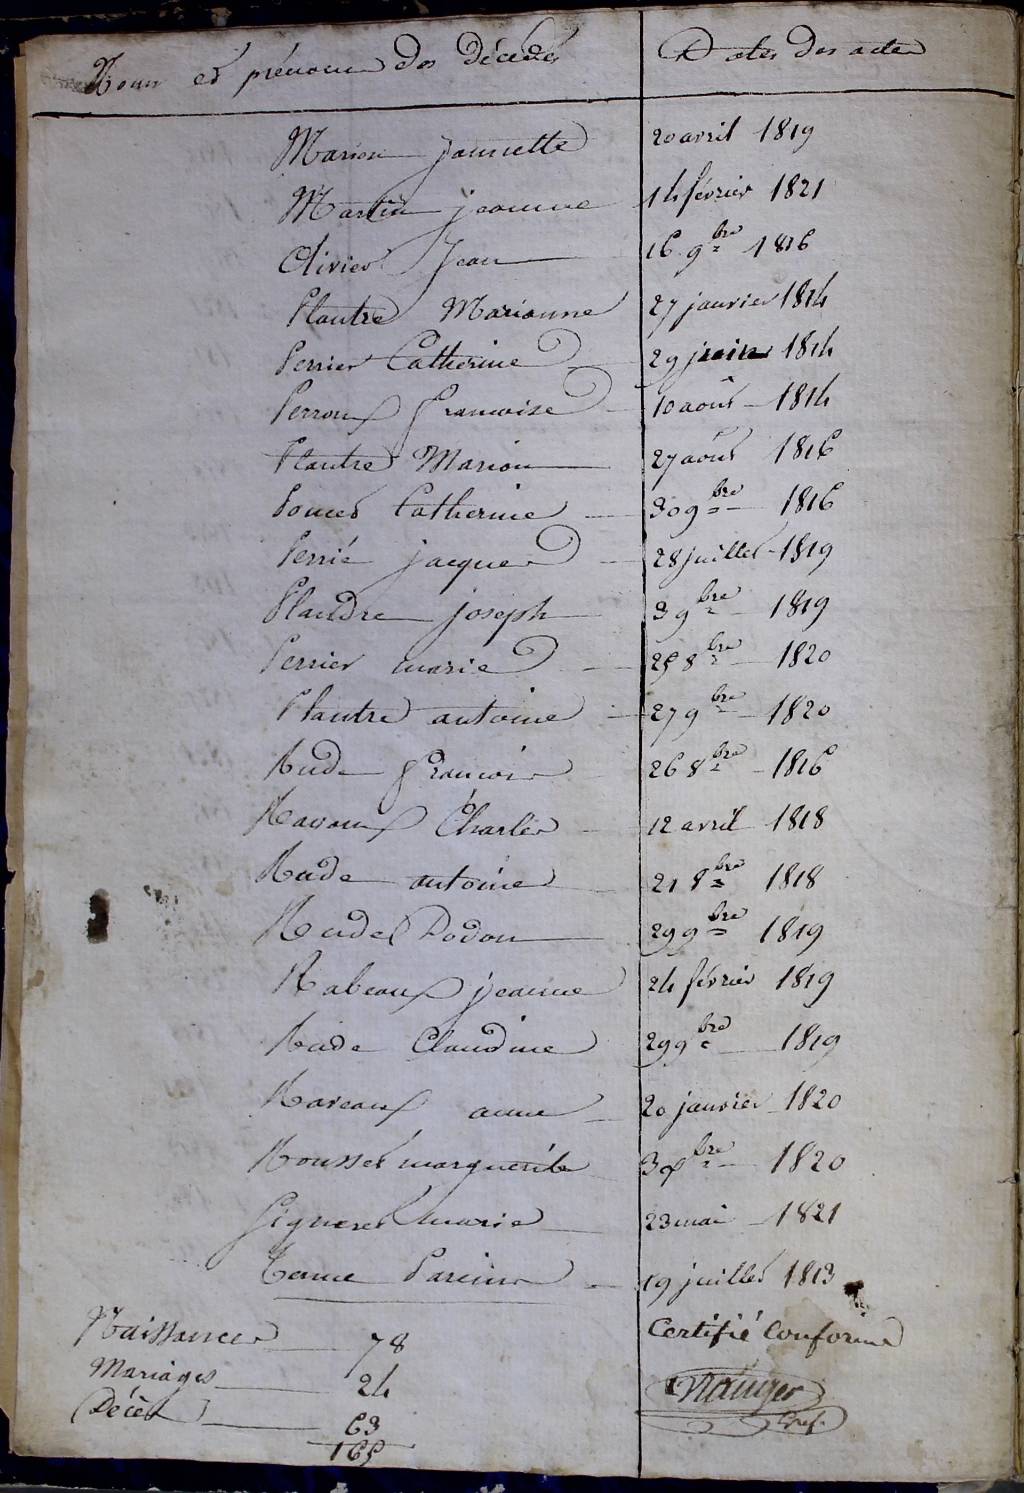 Noms et prénoms des décédés Dates des actes
Marion jannette 20 avril 1819
Martin jeanne 14 février 1821
Olivier Jean 16 9bre 1816
Plantre Marianne 27 janvier 1814
Perrier Catherine 29 1814
Perroux francoise 10 août 1814
Plantre Marion 27 août 1816
Poncet Catherine 30 9bre 1816
Perrié jacques 28 juillet 1819
Plandre joseph 3 9bre 1819
Perrier marie 25 8bre 1820
Plantre antoine 27 9bre 1820
Rude francois 26 8bre 1816
Ravoux Charles 12 avril 1818
Rude antoine 21 8bre 1818
Rudet Dodon 29 9bre 1819
Rabeaux jeanne 24 février 1819
Rude Claudine 29 9bre 1819
Raveaux anne 20 janvier 1820
Rousset marguerite 3 bre 1820
Signeret marie 23 mai 1821
19 juillet 1813
Naissances 78 Certifié Conforme
Mariages 24
Décès 63
165